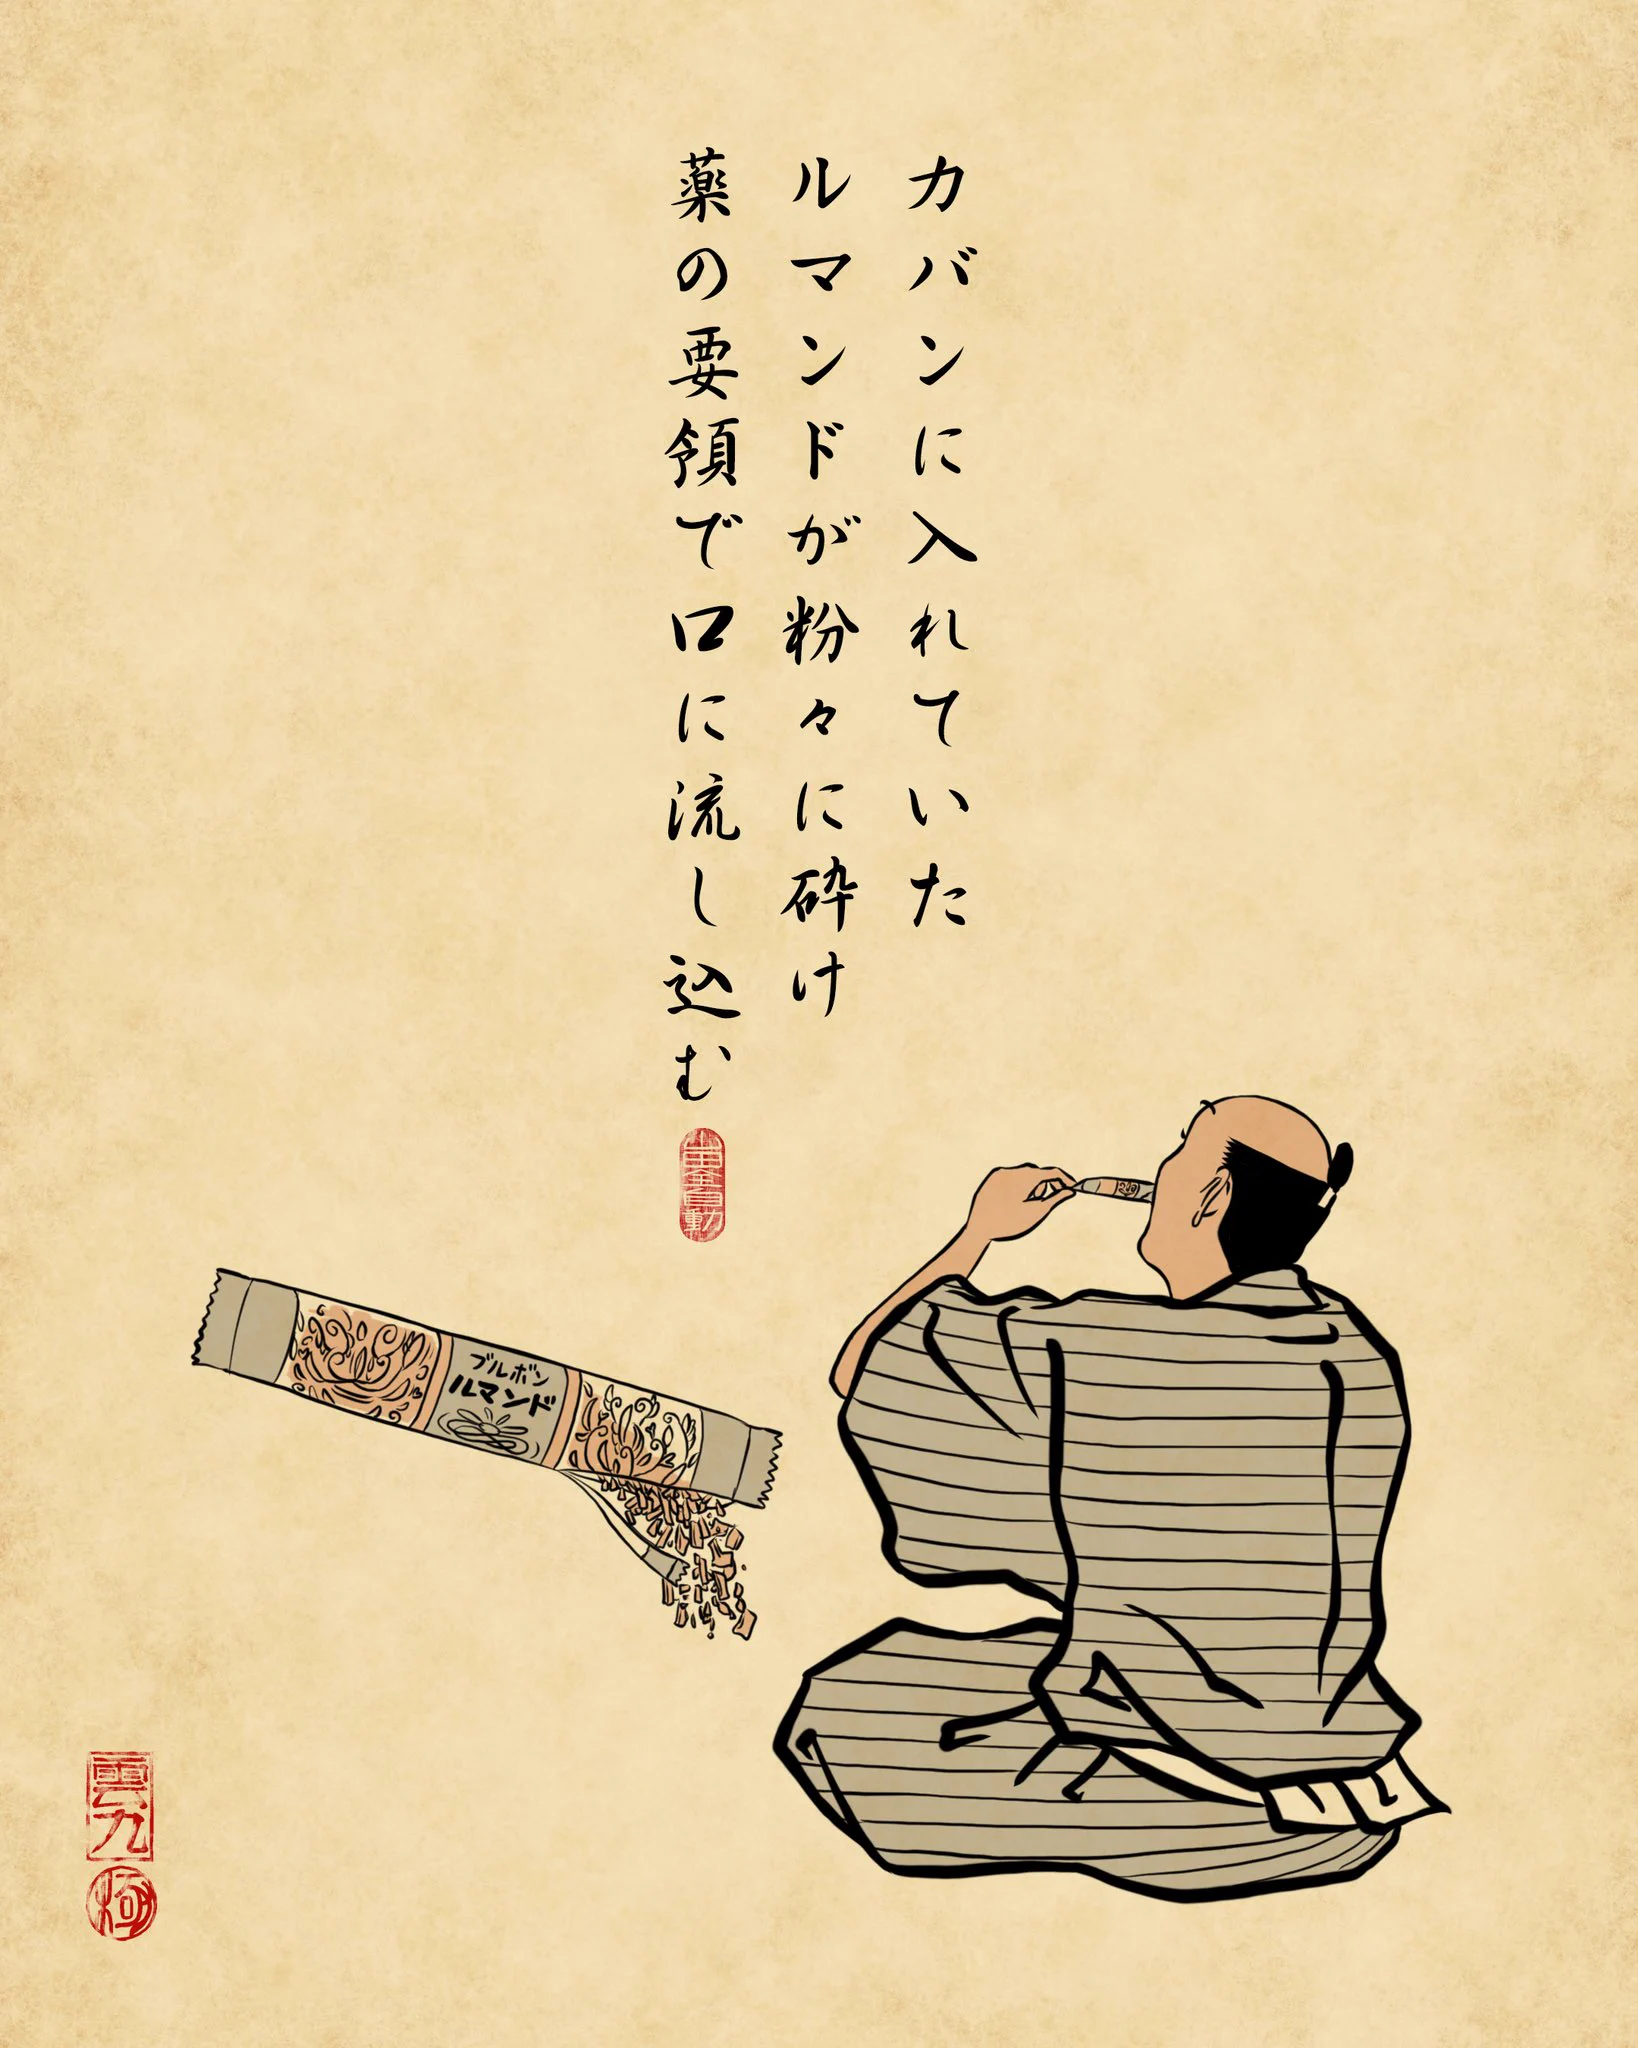 カバンに入れていた
ルマンドが粉々に砕け
薬の要領で口に流し込む
ブルボン
ルマンド
雲九
極